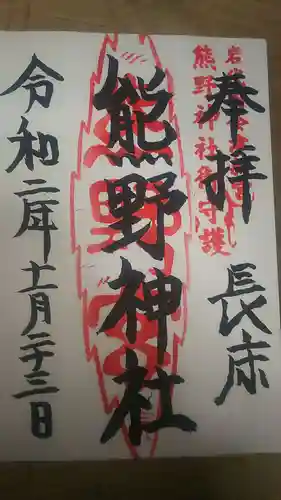 熊野神社御守護
奉拝　長床
熊野神社
令和二年十一月二十三日